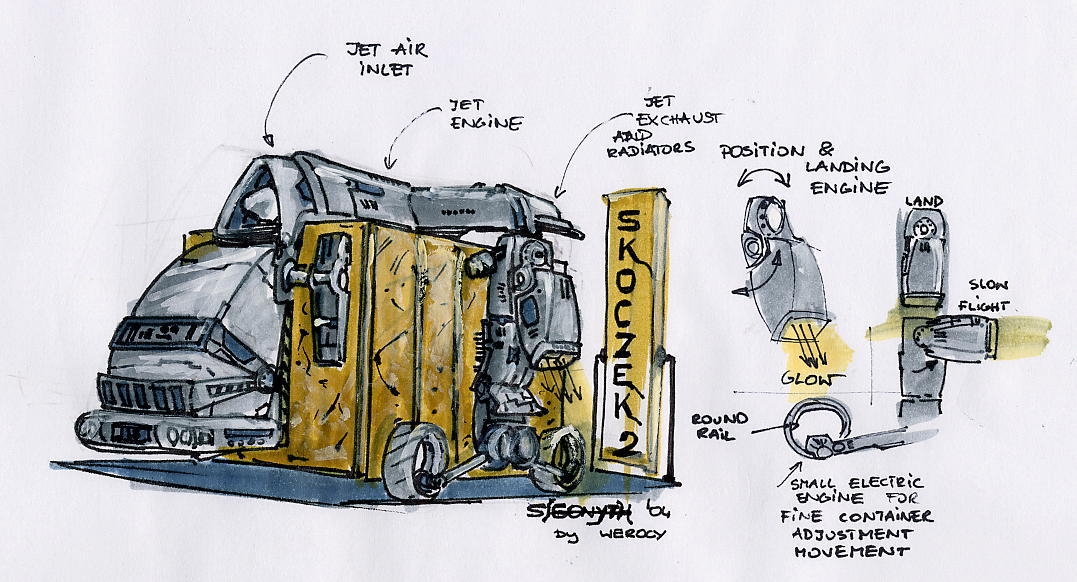 JET AIR
INLET
JET
ENGINE
JET
EXHAUST
AND
RADIATORS
POSITION &
LANDING
ENGINE
LAND
SLOW
FLIGHT
GLOW
ROUND
RAIL
SMALL ELECTRIC
ENGINE FOR
FINE CONTAINER
ADJUSTMENT
MOVEMENT
SKOCZEK 2
'04
by WEROCY